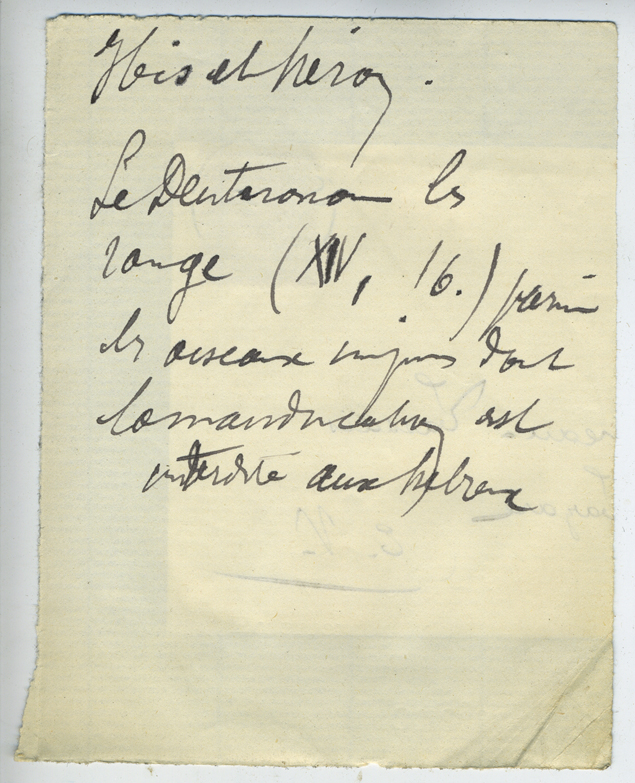 Ibis et héron.
Le Deuteronome les
range (XIV, 16.) parmi
les oiseaux impurs dont
la manducation est
interdite aux hébreux